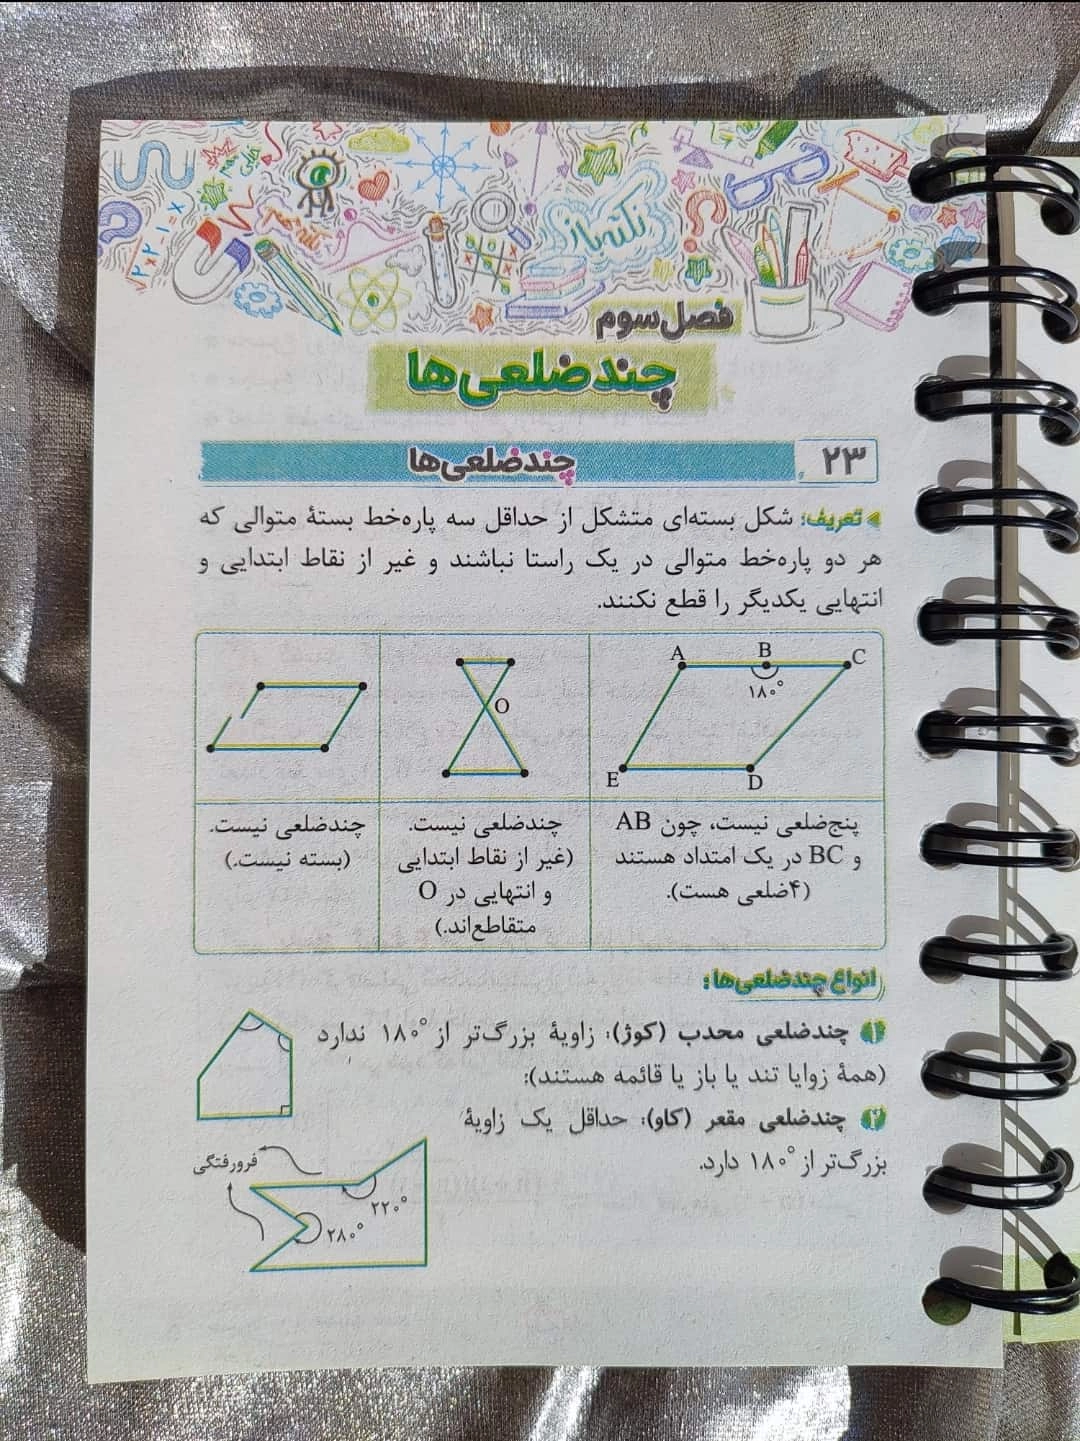 نکته‌باز
√2×2-1=x
فصل سوم
چندضلعی‌ها
۲۳
چندضلعی‌ها
تعریف: شکل بسته‌ای متشکل از حداقل سه پاره‌خط بستهٔ متوالی که
هر دو پاره‌خط متوالی در یک راستا نباشند و غیر از نقاط ابتدایی و
انتهایی یکدیگر را قطع نکنند.
A B C
۱۸۰°
E D
O
پنج‌ضلعی نیست، چون AB
و BC در یک امتداد هستند
(۴ضلعی هست).
چندضلعی نیست.
(غیر از نقاط ابتدایی
و انتهایی در O
متقاطع‌اند.)
چندضلعی نیست.
(بسته نیست.)
انواع چندضلعی‌ها:
۱ چندضلعی محدب (کوژ): زاویهٔ بزرگ‌تر از ۱۸۰° ندارد
(همهٔ زوایا تند یا باز یا قائمه هستند):
۲ چندضلعی مقعر (کاو): حداقل یک زاویهٔ
بزرگ‌تر از ۱۸۰° دارد.
فرورفتگی
۲۲۰°
۲۸۰°